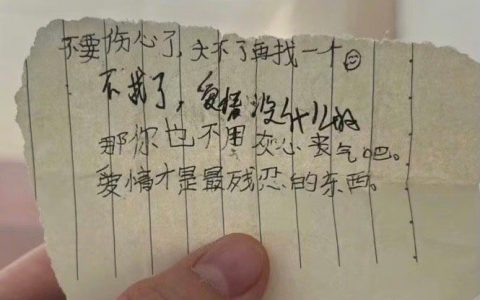 不要伤心了,大不了再找一个☺
不找了,爱情没什么好
那你也不用灰心丧气吧。
爱情才是最残忍的东西。